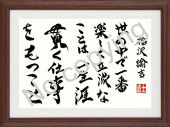 福沢諭吉
世の中で一番
楽しく立派な
ことは一生涯
貫く仕事
をもつこと
No copying